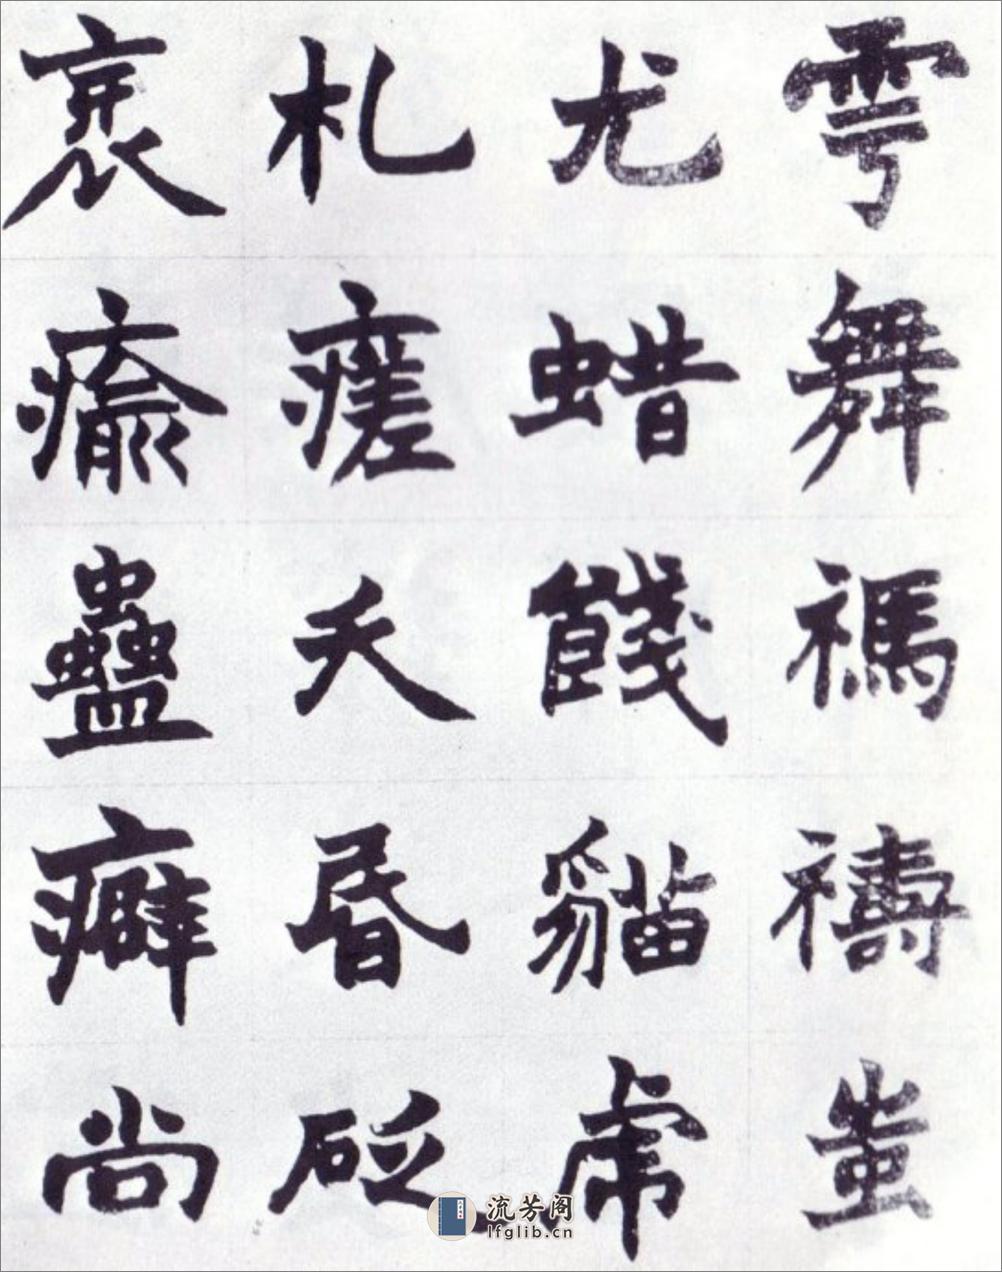 雩舞禡禱蚩
尤蜡餞貓虎
札瘥夭昏砭
瘉蠱癖尚
流芳阁
lfglib.cn